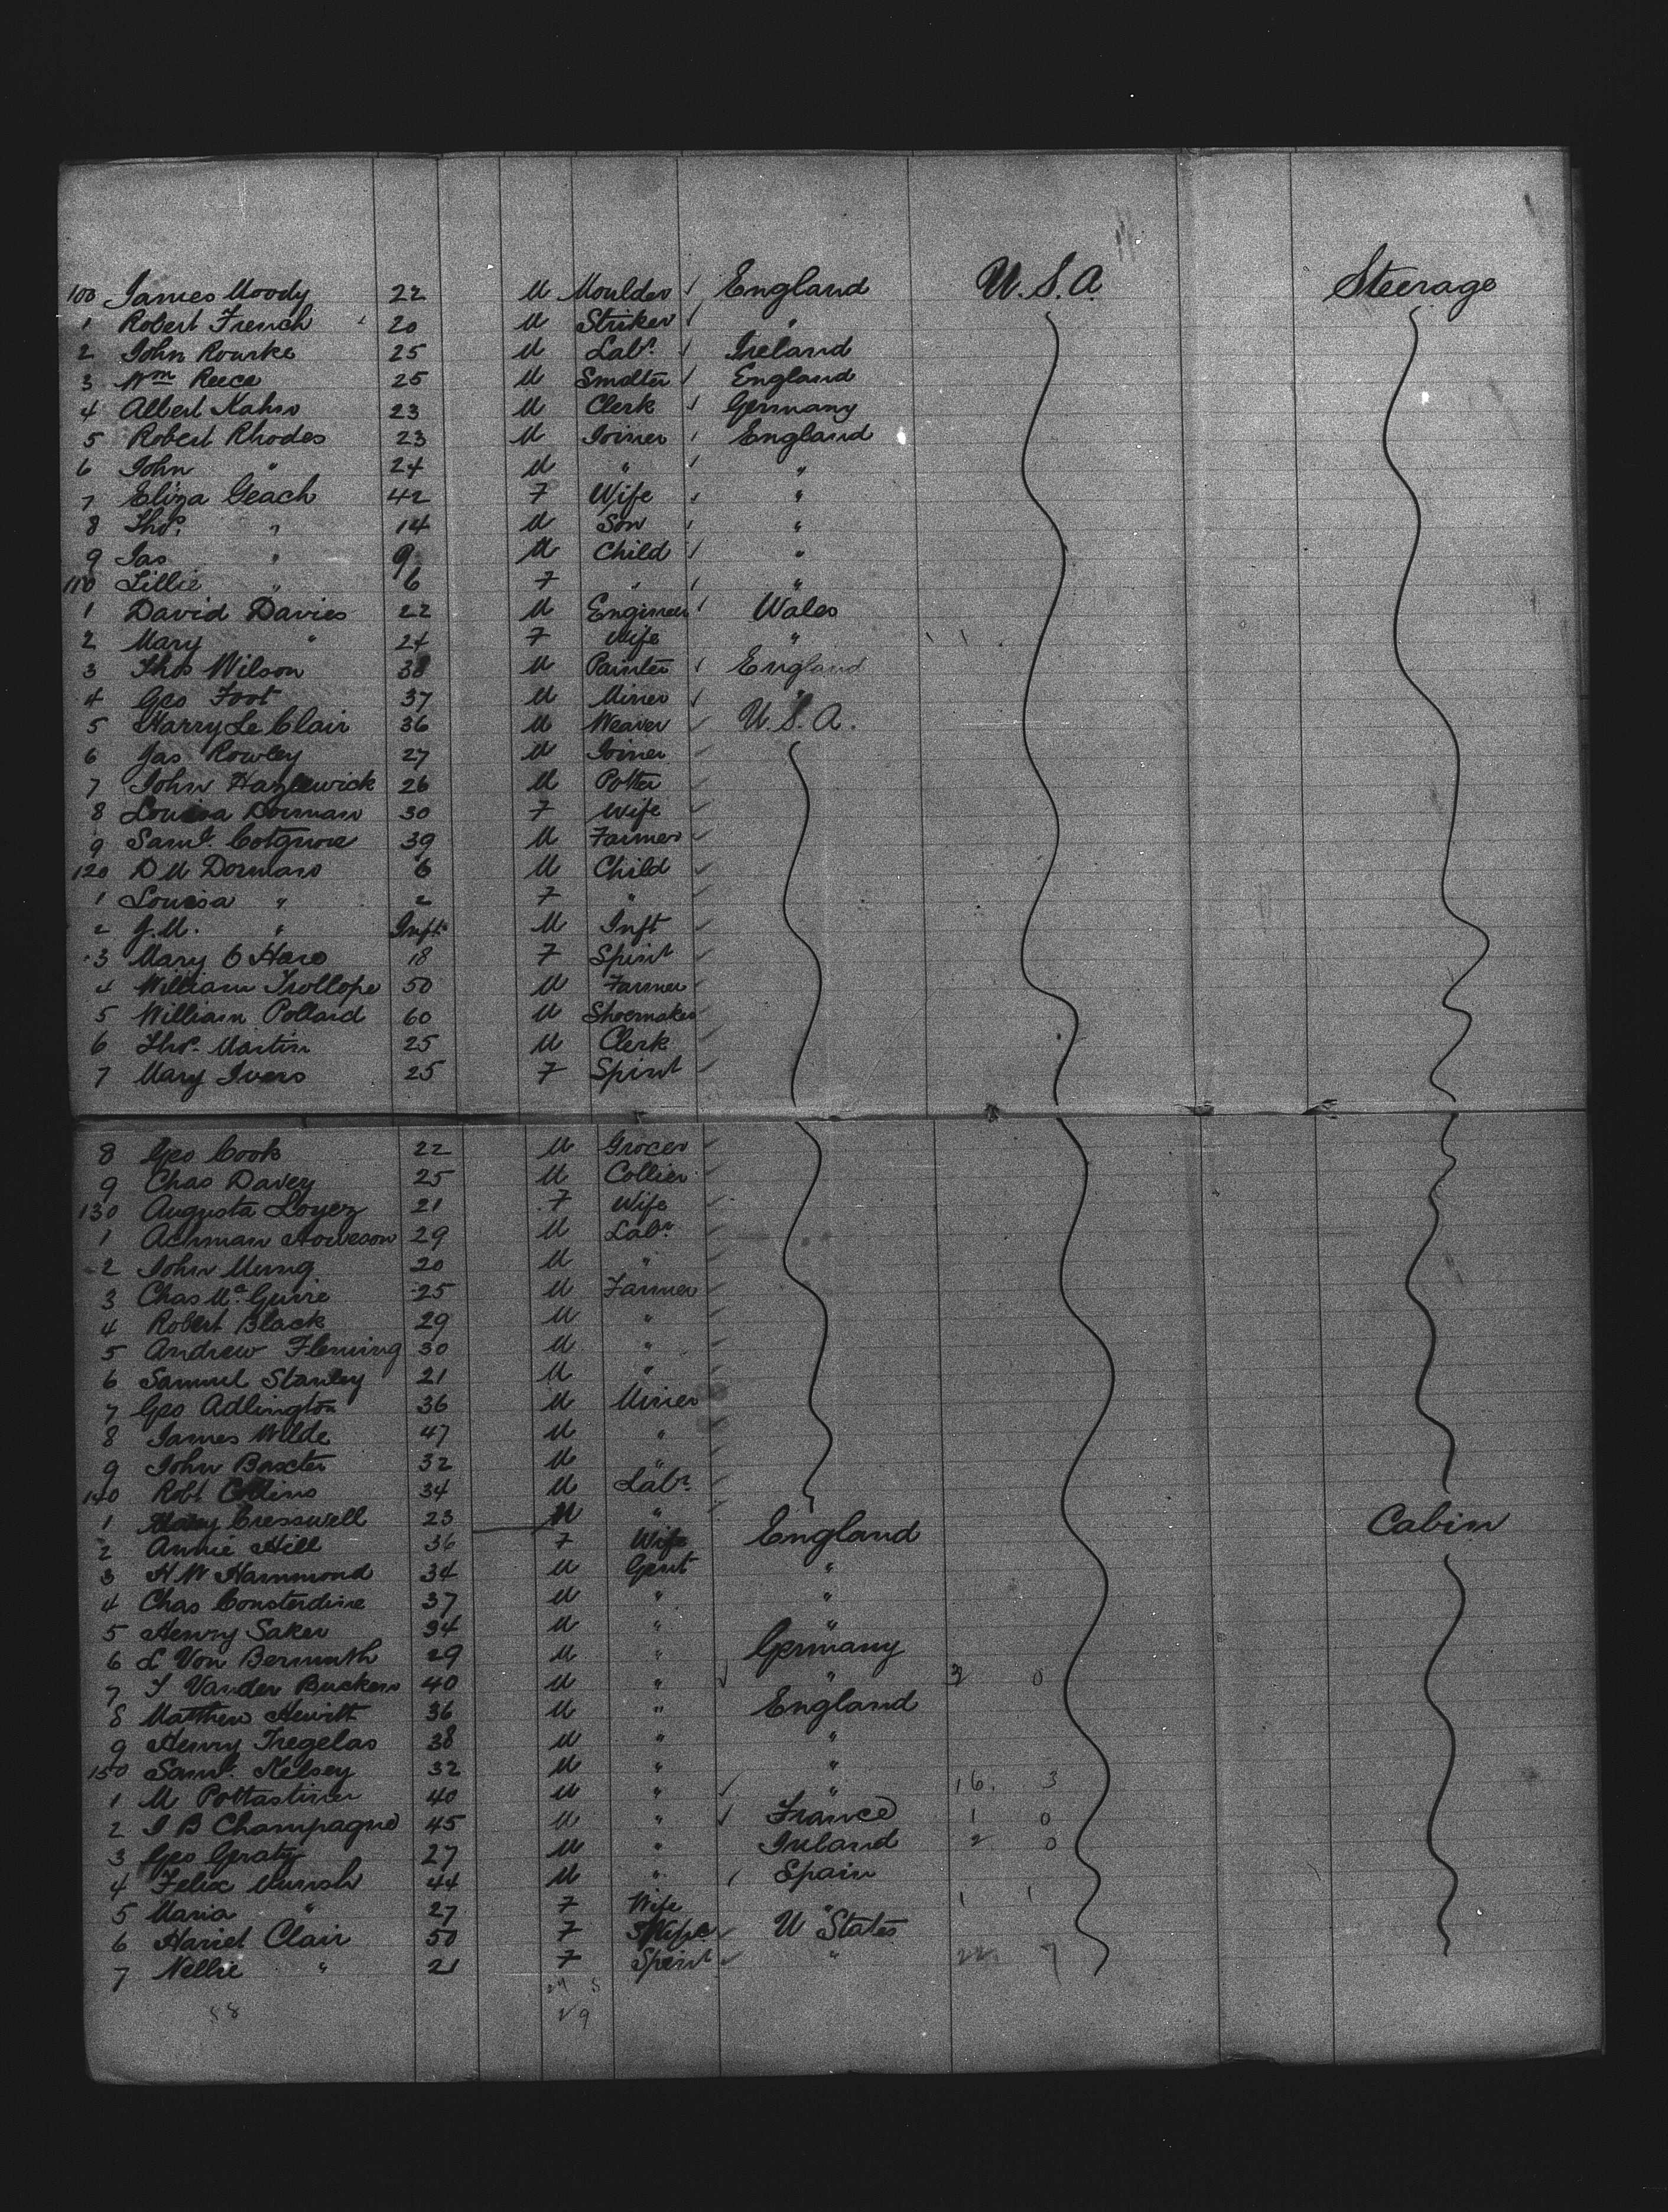 100 James Moody 22 M Moulder England U.S.A. Steerage
1 Robert French 20 M Striker "
2 John Rourke 25 M Labr. Ireland
3 Wm Reece 25 M Smelter England
4 Albert Kahn 23 M Clerk Germany
5 Robert Rhodes 23 M Joiner England
6 John " 24 M " "
7 Eliza Geach 42 F Wife "
8 Thos. " 14 M Son "
9 Jas " 9 M Child "
110 Lillie " 6 F " "
1 David Davies 22 M Engineer Wales
2 Mary " 24 F Wife "
3 Thos Wilson 38 M Painter England
4 Geo Foot 37 M Miner "
5 Harry Le Clair 36 M Weaver U.S.A.
6 Jas Rowley 27 M Joiner
7 John Hazlewick 26 M Potter
8 Louisa Dorman 30 F Wife
9 Saml. Cotgrove 39 M Farmer
120 D M Dorman 6 M Child
1 Louisa " 2 F "
2 J.M. " Inft. M Inft
3 Mary O Hare 18 F Spinst
4 William Trollope 50 M Farmer
5 William Pollard 60 M Shoemaker
6 Thos. Martin 25 M Clerk
7 Mary Ivers 25 F Spinst
8 Geo Cook 22 M Grocer
9 Chas Davey 25 M Collier
130 Augusta Loyez 21 F Wife
1 Achman 29 M Labr.
2 John 20 M "
3 Chas McGuire 25 M Farmer
4 Robert Black 29 M "
5 Andrew Fleming 30 M "
6 Samuel Stanley 21 M "
7 Geo Adlington 36 M Miner
8 James Wilde 47 M "
9 John Baxter 32 M "
140 Robt Collins 34 M Labr.
1 Cresswell 23 M " Cabin
2 Annie Hill 36 F Wife England
3 H W Hammond 34 M Gent "
4 Chas Consterdine 37 M " "
5 Henry Saker 34 M " "
6 L Von Bermuth 29 M " Germany
7 Vander Bucken 40 M " " 0
8 Matthew Hewitt 36 M " England
9 Henry Tregelas 38 M " "
150 Saml. Kelsey 32 M " "
1 M 40 M " " 16. 3
2 J B Champagne 45 M " France 1 0
3 Geo Geraty 27 M " Ireland 2 0
4 Felix 44 M " Spain
5 Maria " 27 F Wife " 1 1
6 Hariet Clair 50 F Wife U States
7 Nellie " 21 F Spinst " 22 7
24 5
29